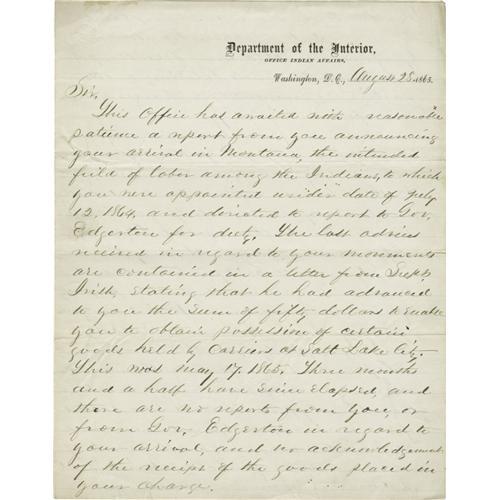 Department of the Interior,
OFFICE INDIAN AFFAIRS,
Washington, D. C., August 28, 1865.
Sir,
This Office has awaited with reasonable
patience a report from you announcing
your arrival in Montana, the intended
field of labor among the Indians, to which
you were appointed under date of July
12, 1864, and directed to report to Gov.
Edgerton for duty. The last advices
received in regard to your movements
are contained in a letter from Supt.
Irish, stating that he had advanced
to you the sum of fifty dollars to enable
you to obtain possession of certain
goods held by carriers at Salt Lake City.
This was May 17, 1865. Three months
and a half have since elapsed, and
there are no reports from you, or
from Gov. Edgerton in regard to
your arrival, and no acknowledgement
of the receipt of the goods placed in
your charge.